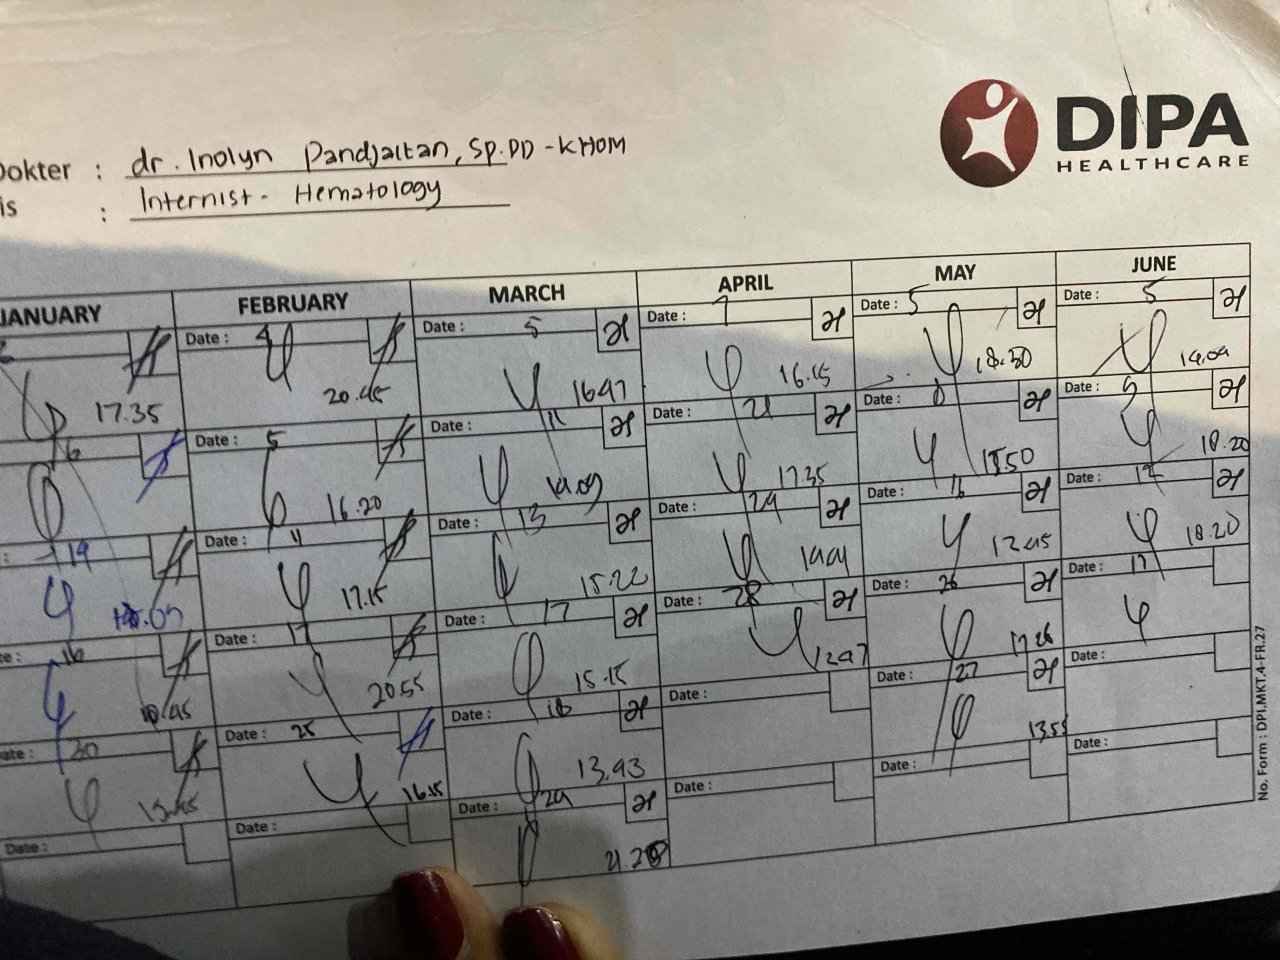 DIPA
HEALTHCARE
Dokter : dr. Inolyn Pandjaitan, Sp.PD-KHOM
is : Internist - Hematology
JANUARY FEBRUARY MARCH APRIL MAY JUNE
Date : 4 Date : 5 Date : 7 Date : 5 Date : 5
17.35 20.45 1647 16.15 18.30 14.09
16 Date : 5 Date : 11 Date : 21 Date : 8 Date : 9
16.20 14.09 17.35 18.20
19 Date : 11 Date : 13 Date : 24 Date : 16 Date : 12
17.15 15.22 12.45 18.20
Date : 17 Date : 17 Date : 28 Date : 26 Date : 17
20.55 15.15 1247 17.26
Date : 30 Date : 25 Date : 18 Date : Date : 27 Date :
16.15 13.43 13.55
Date : Date : Date : 24 Date : Date : Date :
No. Form : DPI.MKT.4-FR.27